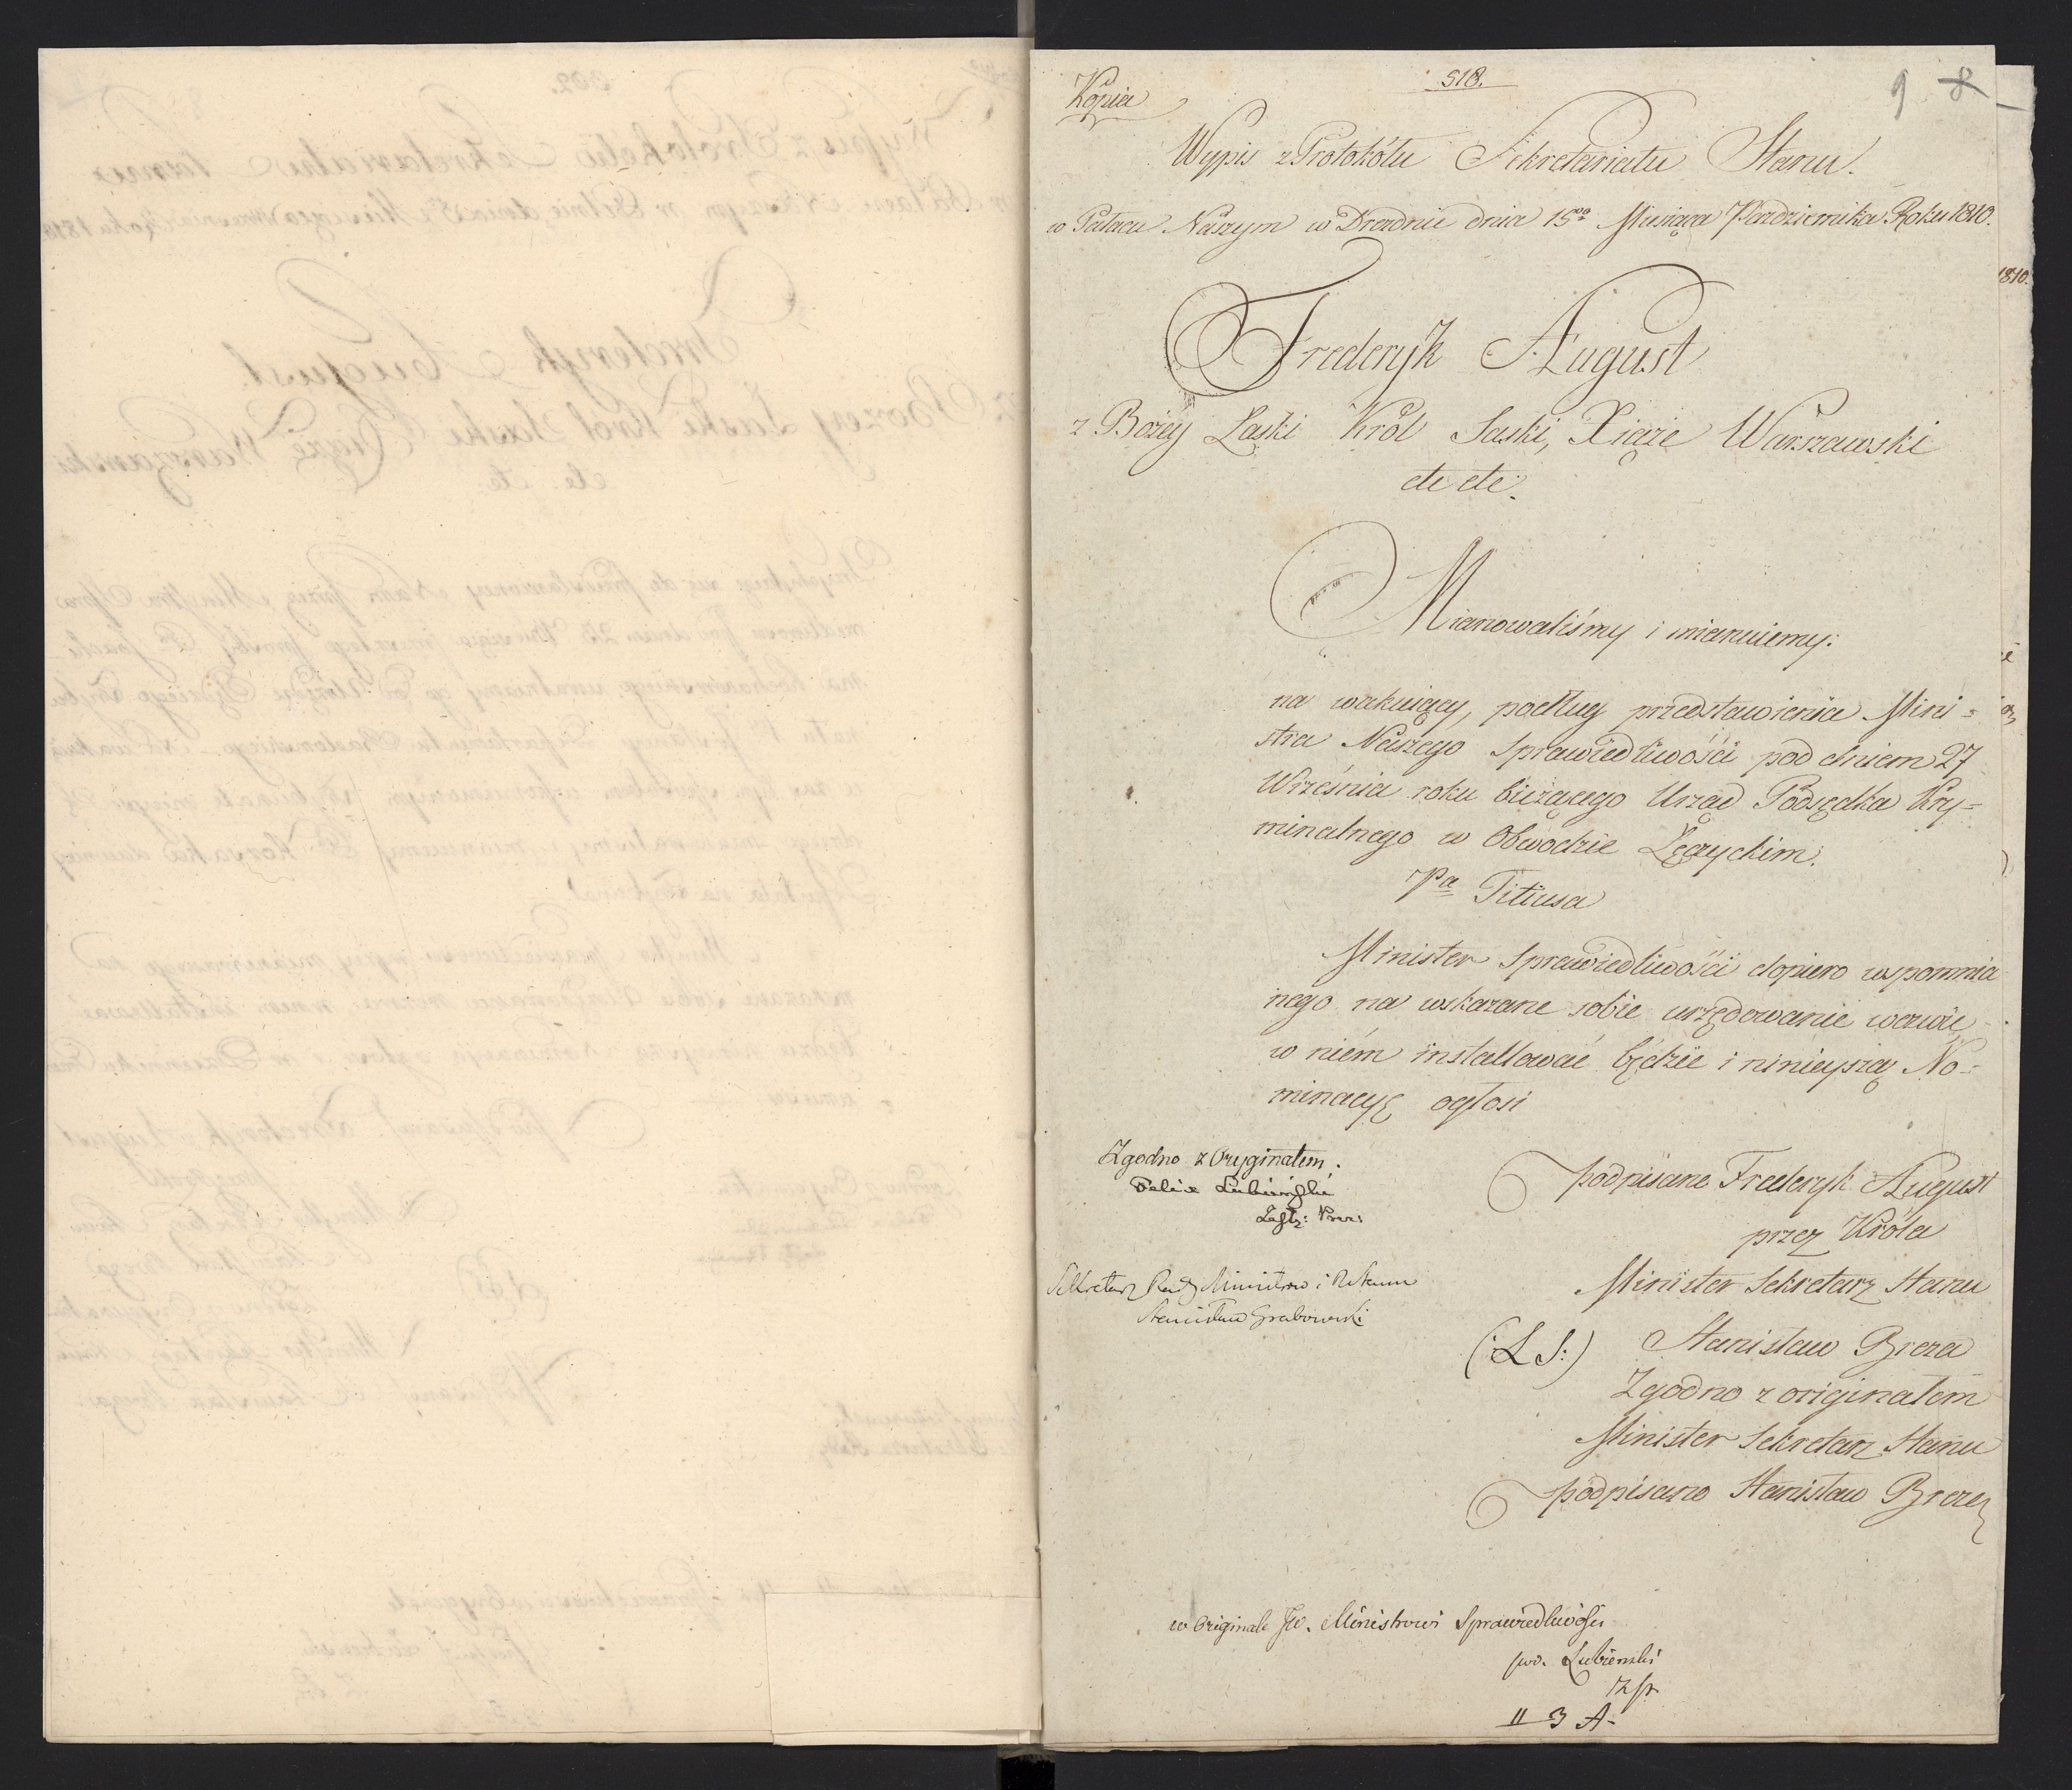 Kopia
518.
9 8
Wypis z Protokółu Sekretariatu Stanu.
w Pałacu Naszym w Dreźnie dnia 15go Miesiąca Października Roku 1810.
1810.
Frederyk August
z Bożey Łaski Król Saski, Xiąże Warszawski
etc etc.
Mianowaliśmy i mianuiemy:
na wakuiący, podług przedstawienia Mini=
stra Naszego Sprawiedliwości pod dniem 27
Września roku bieżącego Urząd Podsędka Kry=
minalnego w Obwodzie Łęczyckim.
Pa Titiusa
Minister Sprawiedliwości dopiero wspomnia
nego na wskazane sobie urzędowanie wezwie
w niém installować będzie i ninieyszą No=
minacyę ogłosi
Zgodno z Oryginałem.
Felix Lubieński
podpisano Frederyk August
przez Króla
Minister Sekretarz Stanu
Sekretarz Rady Ministrów i R Stanu
Stanisław Grabowski
(:L S:) Stanisław Breza
Zgodno z originałem
Minister Sekretarz Stanu
podpisano Stanisław Breza
w Originale JW. Ministrowi Sprawiedliwości
pod. Lubieński
II 3 A-